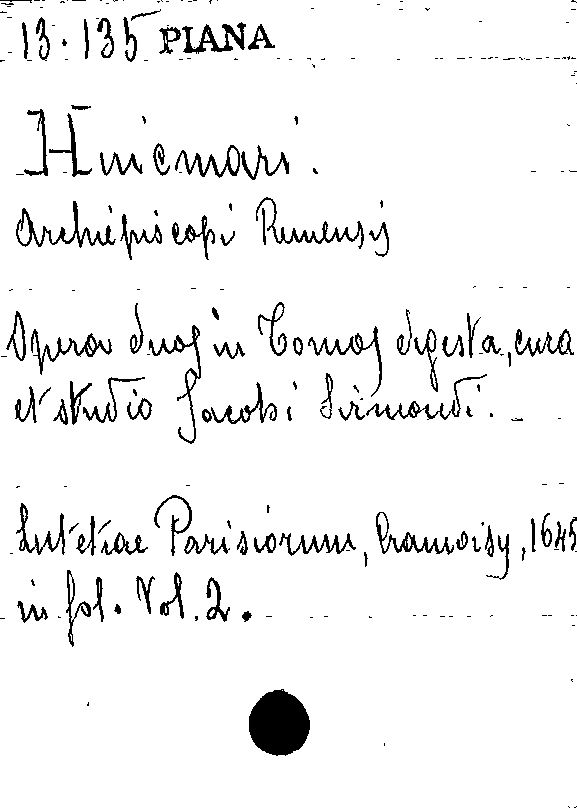 13.135 PIANA
Hincmari.
Archiépiscopi Remensis
Opera duos in Tomos digesta, cura
et studio Jacobi Sirmondi.
Lutetiae Parisiorum, Cramoisy, 1645
in fol. Vol. 2.